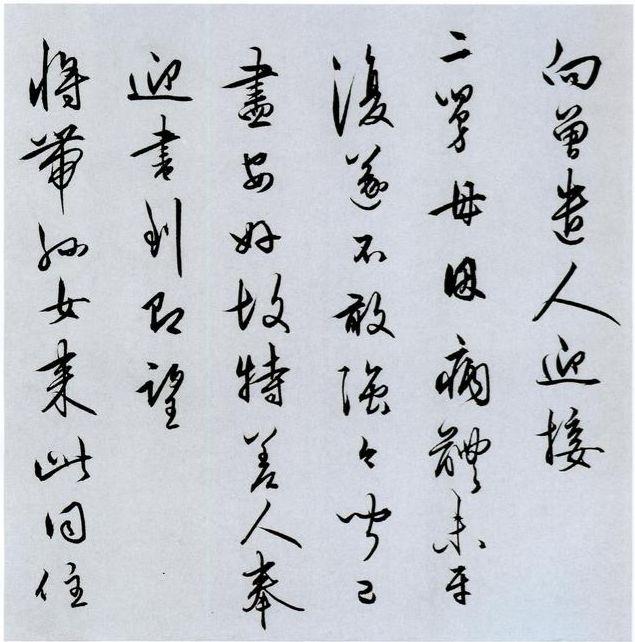 向曾遣人迎接
二舅母因病體未平
復遂不敢強今聞已
盡安好故特差人奉
迎書到即望
將帶孫女來此同住